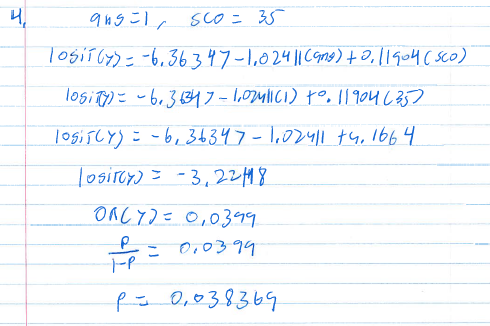 4. gns=1, sco = 35
logit(y) = -6.36347 - 1.02411(gns) + 0.11904(sco)
logit(y) = -6.36347 - 1.02411(1) + 0.11904(35)
logit(y) = -6.36347 - 1.02411 + 4.1664
logit(y) = -3.22118
OR(y) = 0.0399
p/1-p = 0.0399
p = 0.038369